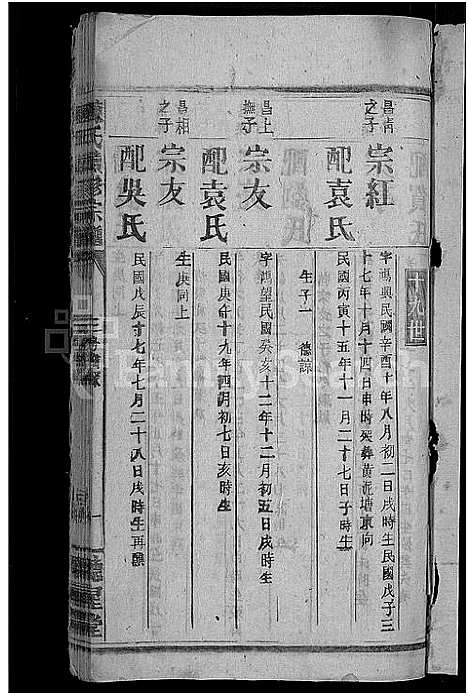 十九世
昌清之子
宗紅
字鴻興民國辛酉十年八月初二日戌時生民國戊子三
十七年十月十四日申時殁彝黃泥塘東向
配袁氏
民國丙寅十五年十一月二十七日子時生
生子一 德謀
昌上撫子
宗友
字鴻望民國癸亥十二年十二月初五日戌時生
配袁氏
民國庚午十九年四月初七日亥時生
昌相之子
宗友
生庚同上
配吳氏
民國戊辰十七年七月二十八日戌時生再醮
氏 修宗譜
堂
FamilySearch